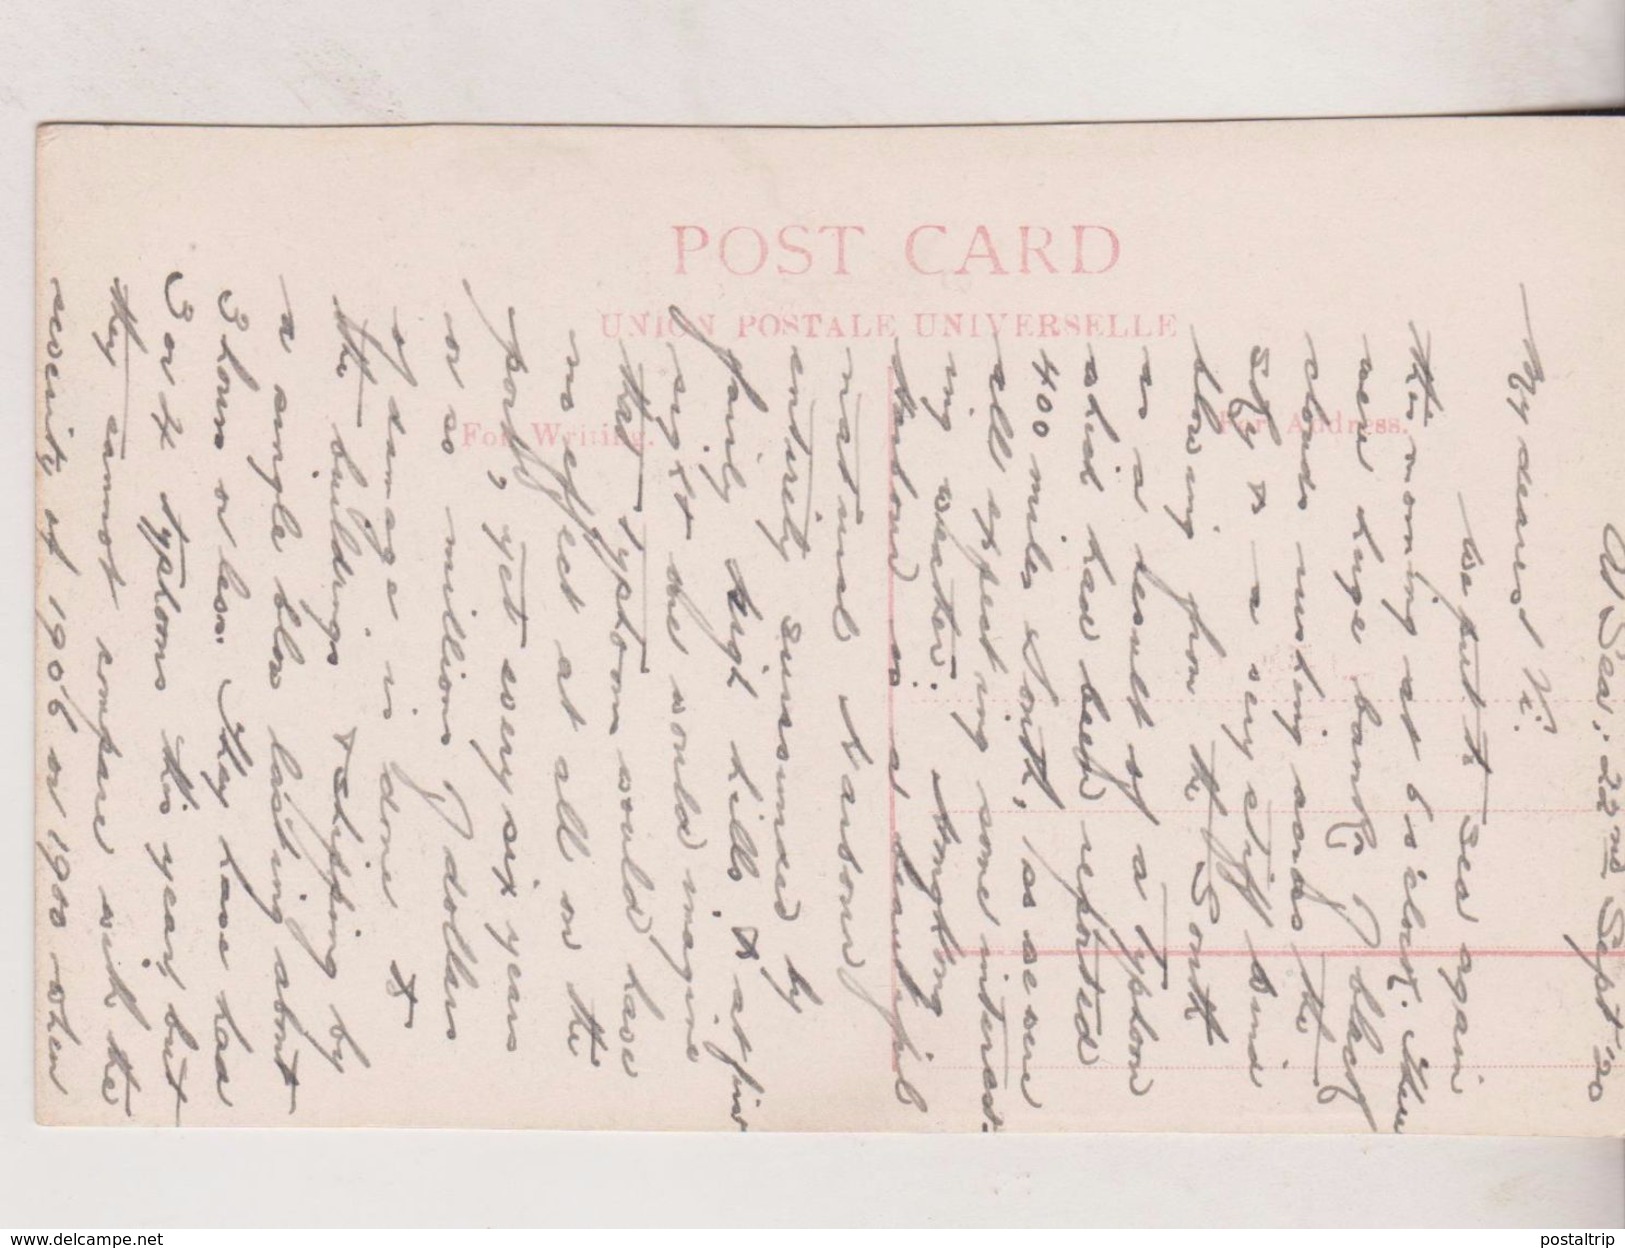 POST CARD
UNION POSTALE UNIVERSELLE
For Writing.
For Address.
At Sea: 22nd Sept '20
My dearest Vi.
We put to sea again
this morning at 6 o'clock. There
were huge banks of black
clouds rushing across the
sky & a very stiff wind
blowing from the South
as a result of a typhoon
which had been reported
400 miles South, so we were
all expecting some interest-
ing weather. Hongkong
Harbour is a beautiful
natural harbour
entirely surrounded by
fairly high hills & at first
sight one would imagine
that typhoons would have
no effect at all on the
port, yet every six years
or so millions of dollars
of damage is done to
the buildings & shipping by
a single blow lasting about
3 hours or less. They have had
3 or 4 typhoons this year, but
they cannot compare with the
severity of 1906 or 1900 when
www.delcampe.net
postaltrip